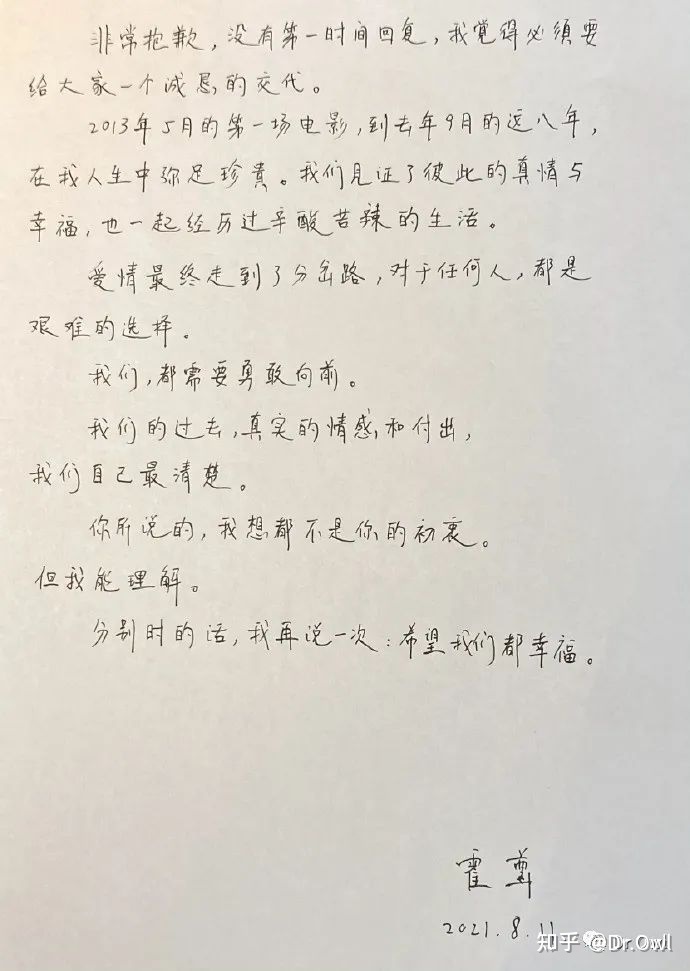 非常抱歉，没有第一时间回复，我觉得必须要
给大家一个诚恳的交代。
2013年5月的第一场电影，到去年9月的近八年，
在我人生中弥足珍贵。我们见证了彼此的真情与
幸福，也一起经历过辛酸苦辣的生活。
爱情最终走到了分岔路，对于任何人，都是
艰难的选择。
我们，都需要勇敢向前。
我们的过去，真实的情感和付出，
我们自己最清楚。
你所说的，我想都不是你的初衷。
但我能理解。
分别时的话，我再说一次：希望我们都幸福。
霍尊
2021.8.11
知乎 @Dr.Owl